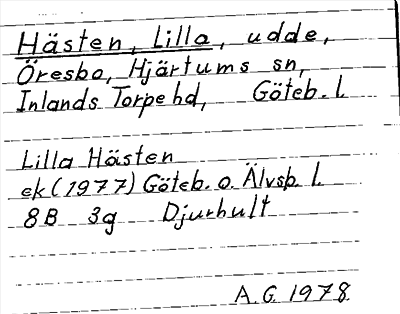 Hästen, Lilla, udde,
Öresbo, Hjärtums sn,
Inlands Torpe hd, Göteb. l.
Lilla Hästen
ek (1977) Göteb. o. Älvsb. l.
8B 3g Djurhult
A.G. 1978